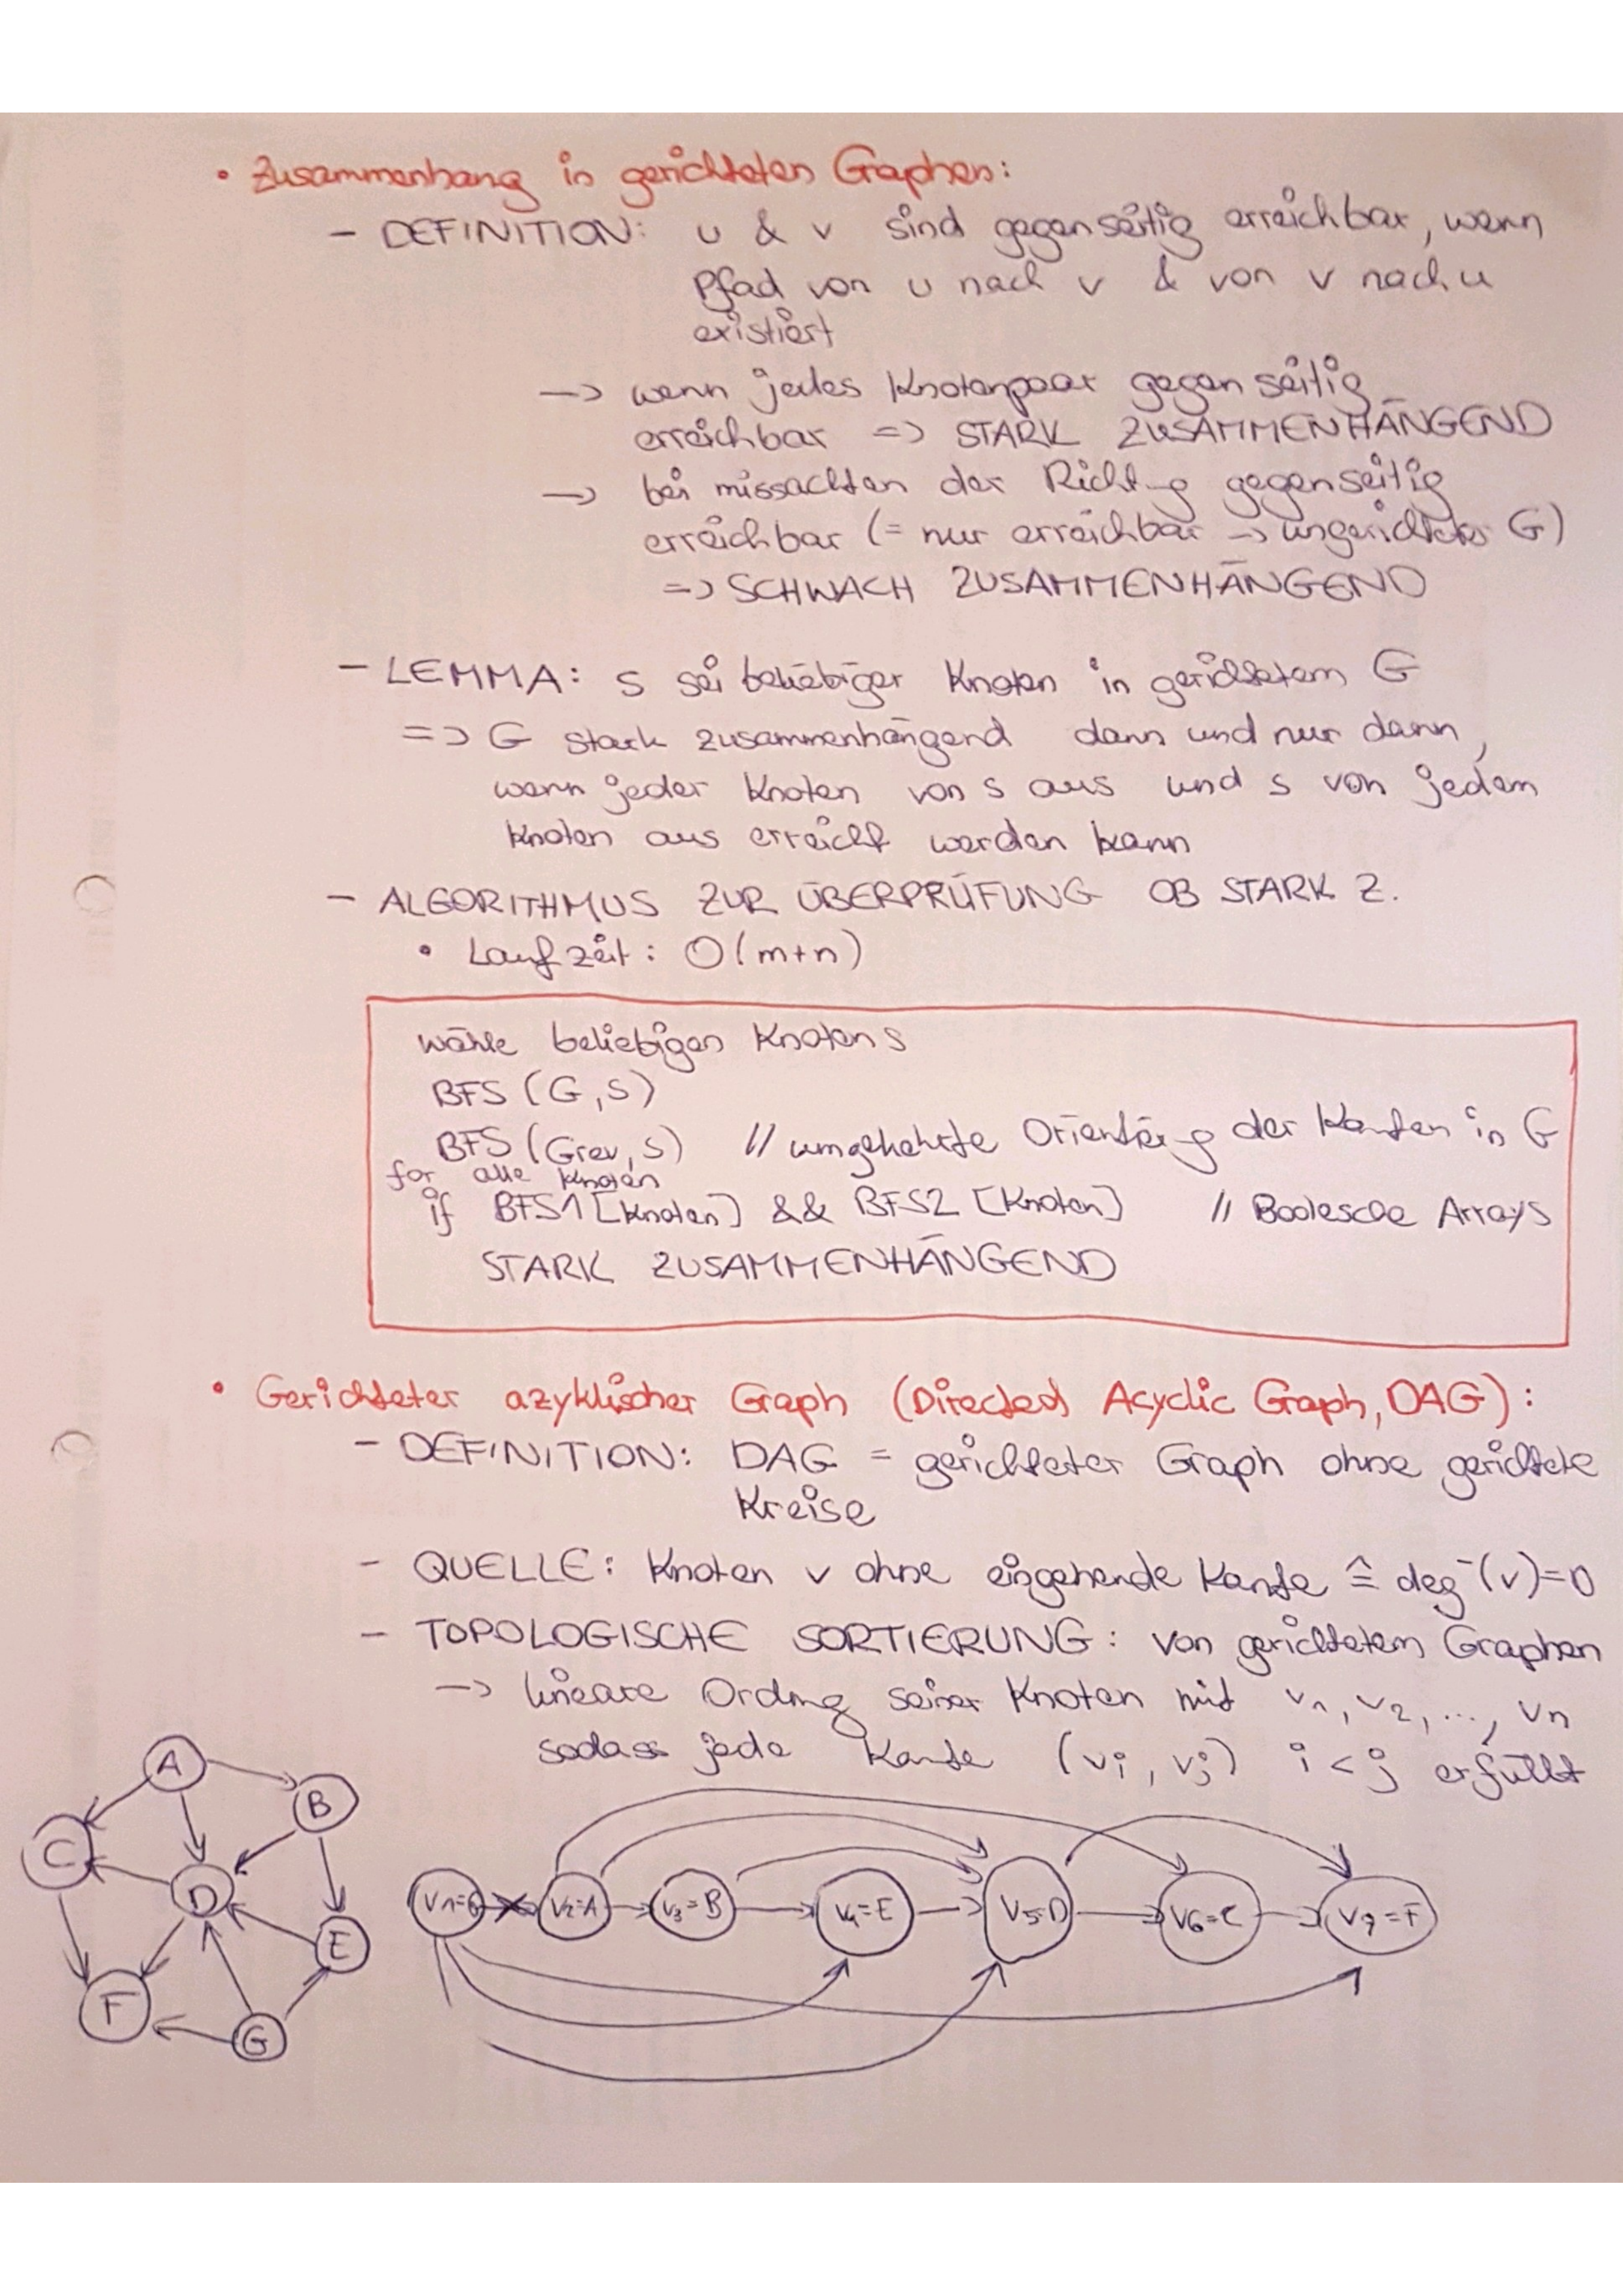 • Zusammenhang in gerichteten Graphen:
- DEFINITION: u & v sind gegenseitig erreichbar, wenn
Pfad von u nach v & von v nach u
existiert
-> wenn jedes Knotenpaar gegenseitig
erreichbar => STARK ZUSAMMENHÄNGEND
-> bei missachten der Richtg gegenseitig
erreichbar (= nur erreichbar -> ungerichteter G)
=> SCHWACH ZUSAMMENHÄNGEND
- LEMMA: s sei beliebiger Knoten in gerichtetem G
=> G stark zusammenhängend dann und nur dann,
wenn jeder Knoten von s aus und s von jedem
Knoten aus erreicht werden kann
- ALGORITHMUS ZUR ÜBERPRÜFUNG OB STARK Z.
• Laufzeit: O(m+n)
wähle beliebigen Knoten s
BFS (G,s)
BFS (Grev, s) // umgekehrte Orientierg der Kanten in G
for alle Knoten
if BFS1 [Knoten] && BFS2 [Knoten] // Boolesche Arrays
STARK ZUSAMMENHÄNGEND
• Gerichteter azyklischer Graph (Directed Acyclic Graph, DAG):
- DEFINITION: DAG = gerichteter Graph ohne gerichtete
Kreise
- QUELLE: Knoten v ohne eingehende Kante ≙ deg⁻(v)=0
- TOPOLOGISCHE SORTIERUNG: von gerichtetem Graphen
-> lineare Ordng seiner Knoten mit v₁, v₂, ..., vn
sodass jede Kante (vi, vj) i < j erfüllt
A
B
C
D
E
F
G
v₁=G v₂=A v₃=B v₄=E v₅=D v₆=C v₇=F